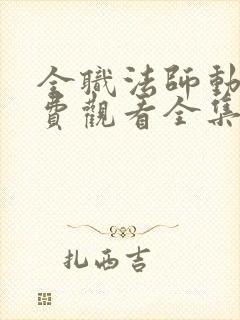 全職法師動
費觀看全集
扎西吉